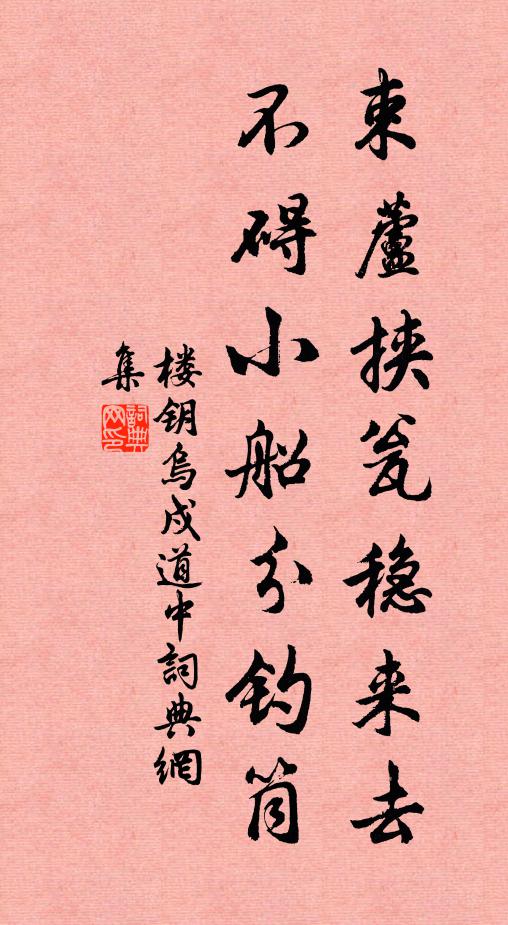 束蘆挟瓮稳来去
不碍小船分钓筒
楼钥乌戍道中詞典網
集
詞典網印